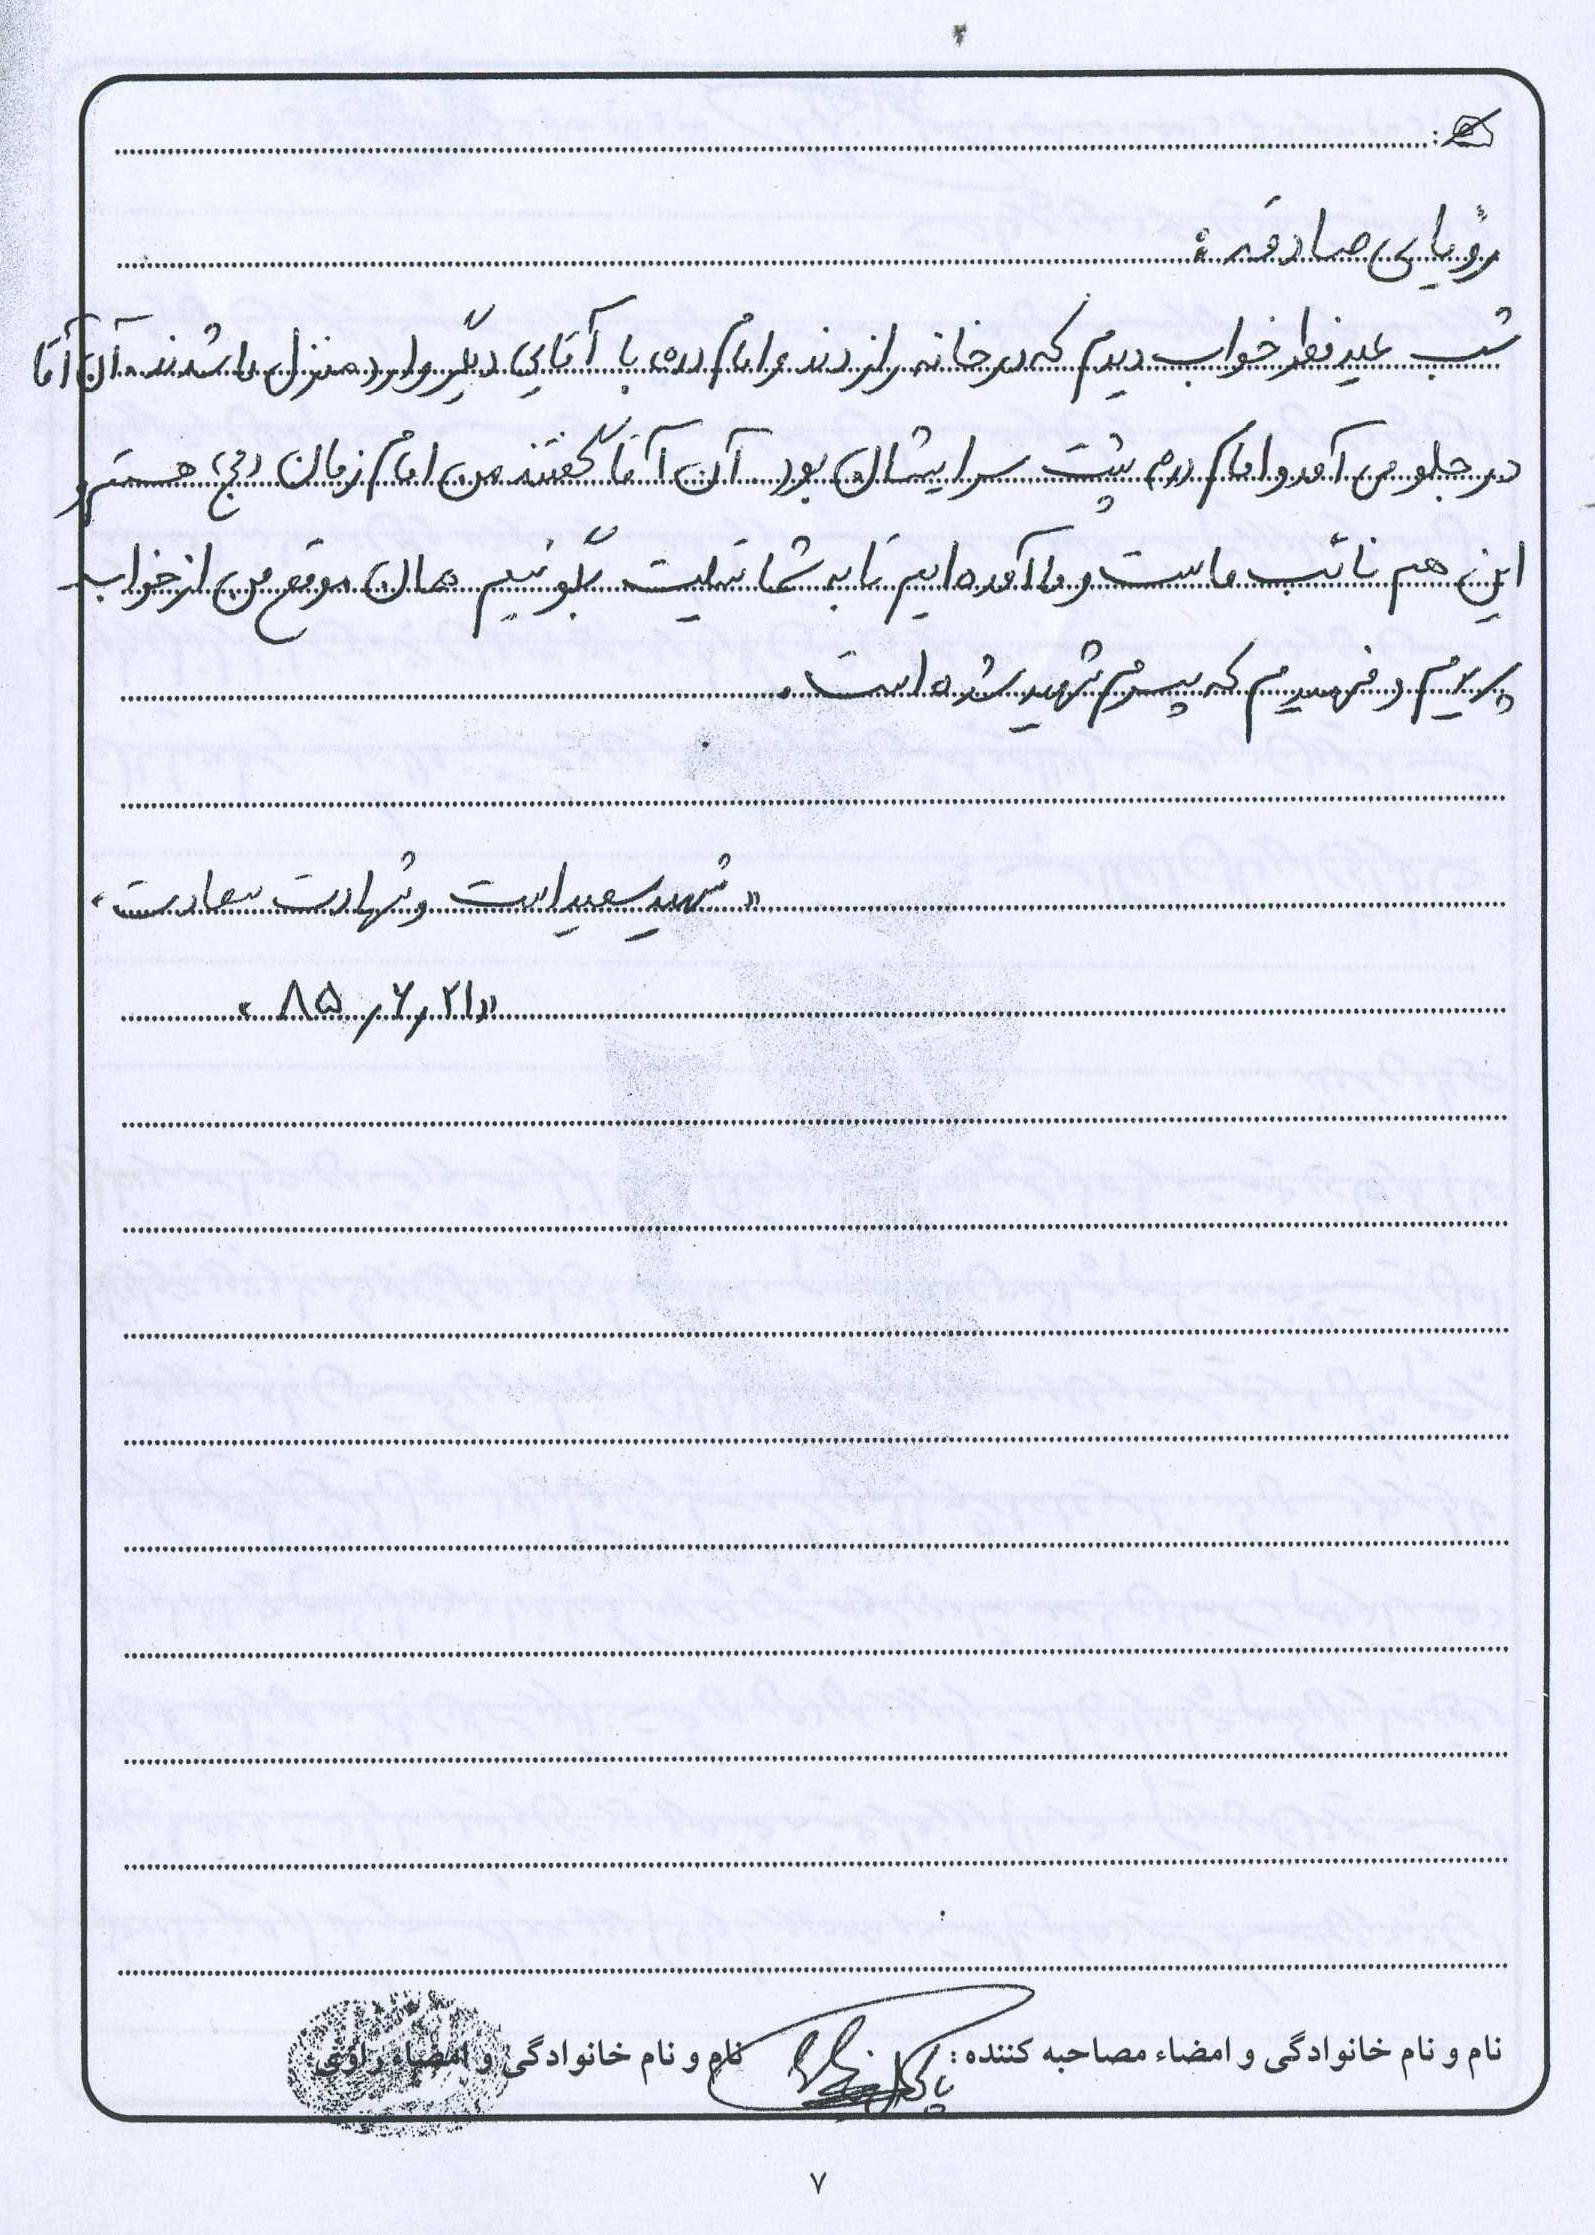 رؤیایی صادقه:
شب عید فطر خواب دیدم که در خانه را زدند و امام (ره) با آقایی دیگر وارد منزل ما شدند. آن آقا
در جلو می آمد و امام (ره) پشت سر ایشان بود. آن آقا گفتند من امام زمان (عج) هستم و
این هم نائب ماست و ما آمده ایم تا به شما تسلیت بگوئیم همان موقع من از خواب
پریدم و فهمیدم که پسرم شهید شده است.
«شهید سعید است و شهادت سعادت»
«۸۵/۶/۲۱»
نام و نام خانوادگی و امضاء مصاحبه کننده: نام و نام خانوادگی و امضاء راوی:
۷